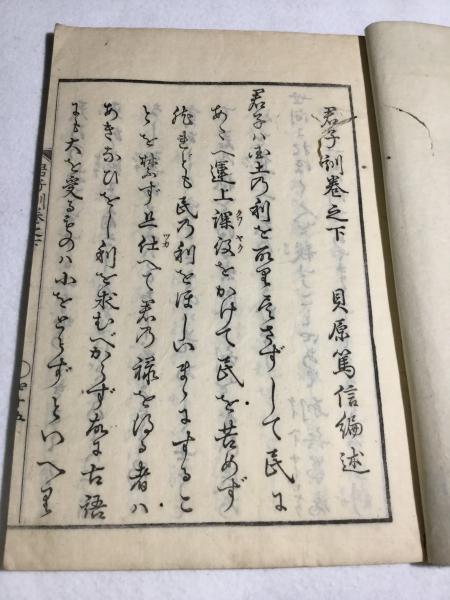 君子訓巻之下　貝原篤信編述
君子ハ国土乃利を取里尽さずして民に
あたへ運上課役をかけて民を苦めず
然れども民乃利をほしいまゝにするこ
とを禁ず且仕へて君乃禄を得る者ハ
あきなひをし利を求むべからず故に古語
にも大を受るものハ小をとらずといへり
君子訓巻之下